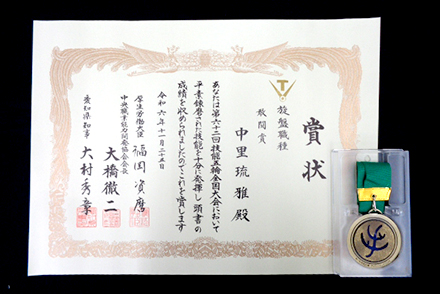 賞状
旋盤職種
敢闘賞
中里琉雅殿
あなたは第六十二回技能五輪全国大会において
平素錬磨された技能を十分に発揮し頭書の
成績を収められましたのでこれを賞します
令和六年十一月二十五日
厚生労働大臣 福岡資麿
中央職業能力開発協会会長 大橋徹二
愛知県知事 大村秀章